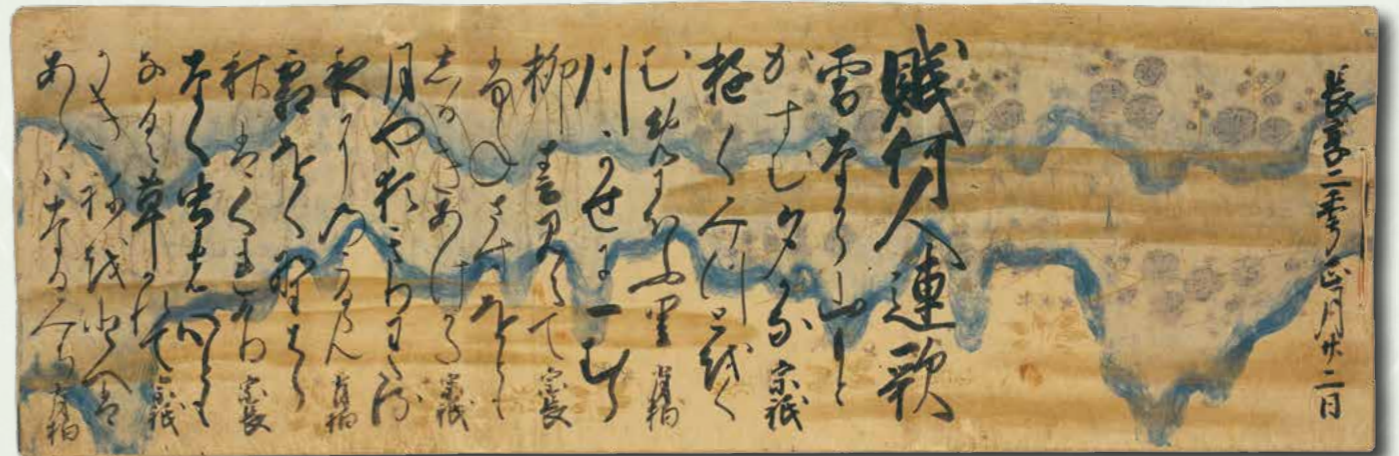 長享二年正月廿二日
賦何人連歌
雪なから山もと
かすむ夕かな 宗祇
行くみつとをく
梅にほふ里 肖柏
川かせに一むら
柳春見えて 宗長
舟さすをとも
しるきあけかた 宗祇
月や猶きりわたる
夜にのこるらん 肖柏
霜をく野はら
秋はくれけり 宗長
なく虫の心とも
なく草かれて 宗祇
かきねをとへは
あらはなるみち 肖柏